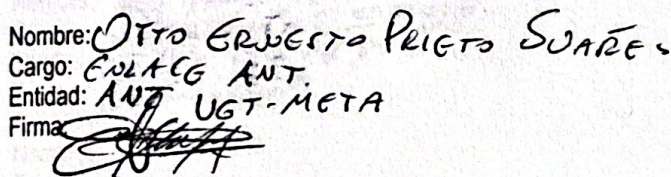 Nombre: OTTO ERNESTO PRIETO SUAREZ
Cargo: ENLACE ANT
Entidad: ANT UGT-META
Firma